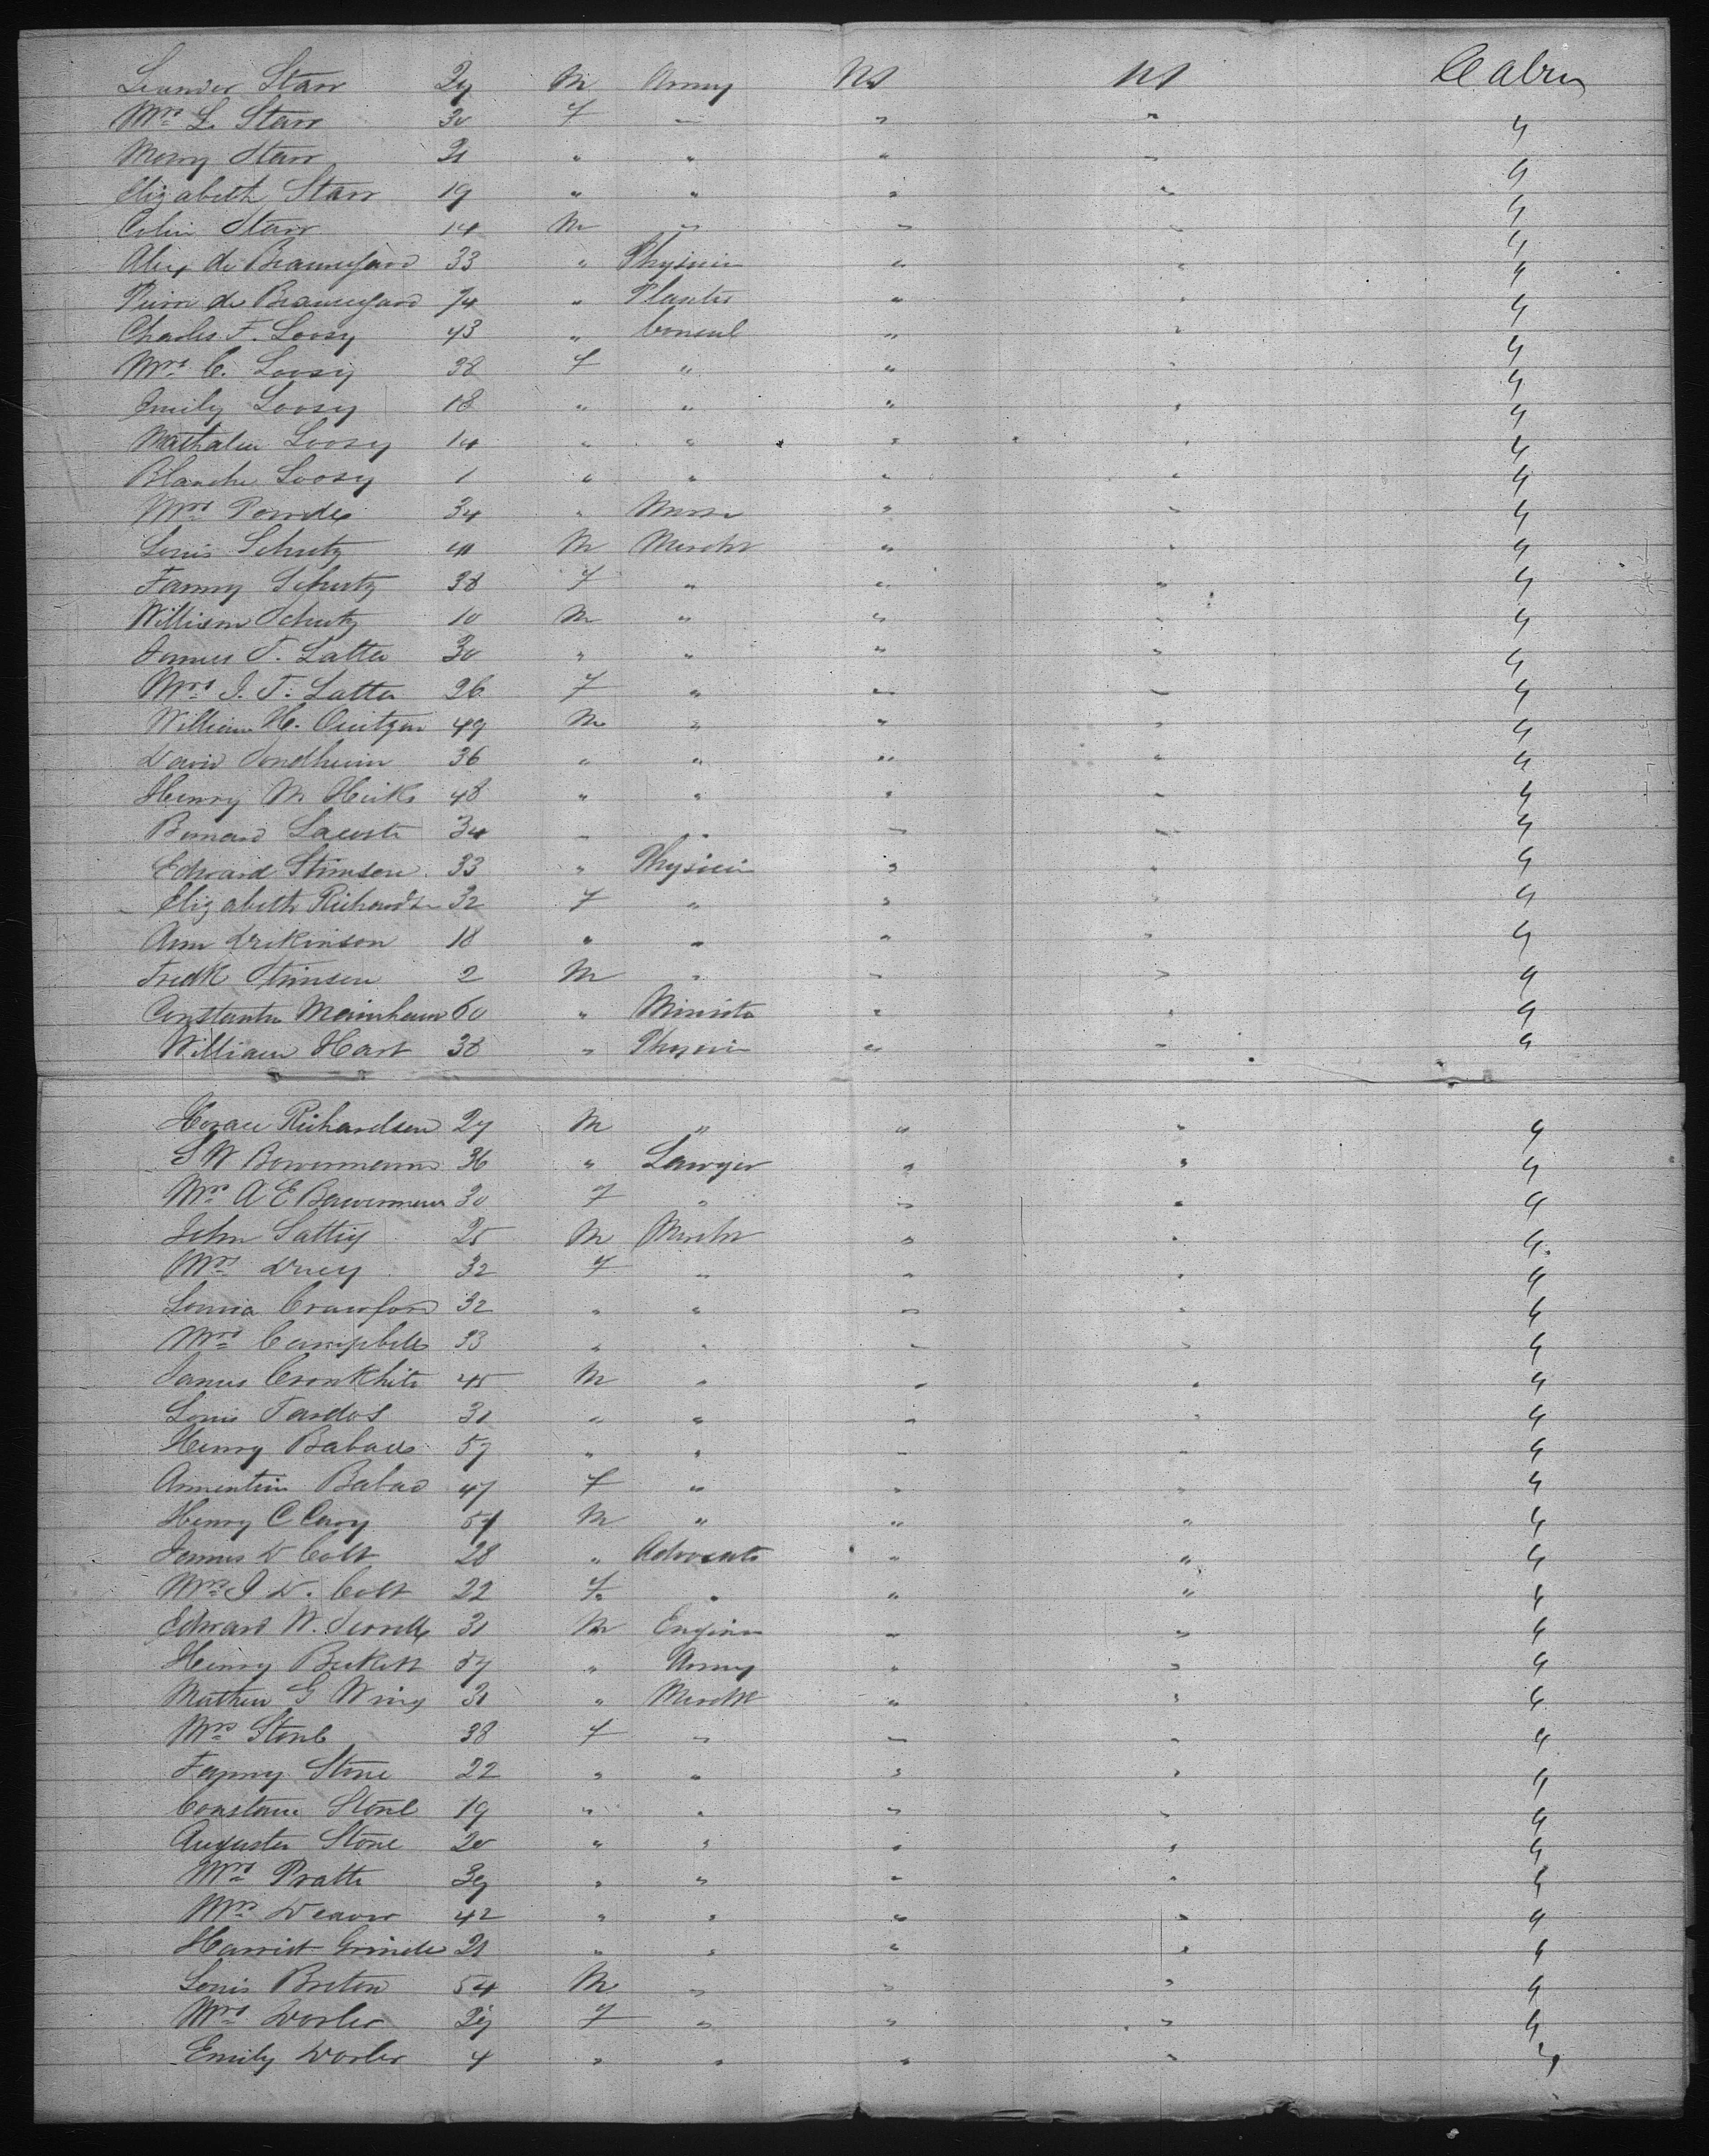 Leander Starr 29 M Army US US Cabin
Mrs L. Starr 30 F " " " "
Mary Starr 21 " " " " "
Elizabeth Starr 19 " " " " "
Colin Starr 14 M " " " "
Alex de Beauregard 33 " Physicin " " "
Pierre de Beauregard 74 " Planter " " "
Charles F. Loosy 43 " Consul " " "
Mrs C. Loosy 38 F " " " "
Emily Loosy 18 " " " " "
Mathalie Loosy 14 " " " " "
Blanche Loosy 1 " " " " "
Mrs 34 " Nurse " " "
Louis Schutz 40 M Mercht " " "
Fanny Schutz 38 F " " " "
William Schutz 10 M " " " "
James T. Latta 30 " " " " "
Mrs J. T. Latta 26 F " " " "
William H. 49 M " " " "
David Sondheim 36 " " " " "
Henry M 48 " " " " "
Bernard Lacoste 34 " " " " "
Edward Stimson 33 " Physicin " " "
Elizabeth Richardson 32 F " " " "
Ann Dickinson 18 " " " " "
Fredk Stimson 2 M " " " "
60 " Minister " " "
William Hart 38 " Physicin " " "
Horace Richardson 27 M " " " "
S W Bowermann 36 " Lawyer " " "
Mrs A E Bowermann 30 F " " " "
John Sattig 25 M Mercht " " "
Mrs 32 F " " " "
Louisa Crawford 32 " " " " "
Mrs Campbell 33 " " " " "
James Cronkhite 45 M " " " "
Louis Tardos 31 " " " " "
Henry Babad 57 " " " " "
Armentine Babad 47 F " " " "
Henry C Cary 57 M " " " "
James D Colt 28 " Advocate " " "
Mrs J D. Colt 22 F " " " "
Edward W. Serrell 31 M Engineer " " "
Henry Beckett 57 " Army " " "
Mathew G Wing 31 " Mercht " " "
Mrs Stone 38 F " " " "
Fanny Stone 22 " " " " "
Constance Stone 19 " " " " "
Augusta Stone 20 " " " " "
Mrs Pratte 39 " " " " "
Mrs Deaver 42 " " " " "
Harriet 21 " " " " "
Louis Breton 54 M " " " "
Mrs Dorler 29 F " " " "
Emily Dorler 4 " " " " "